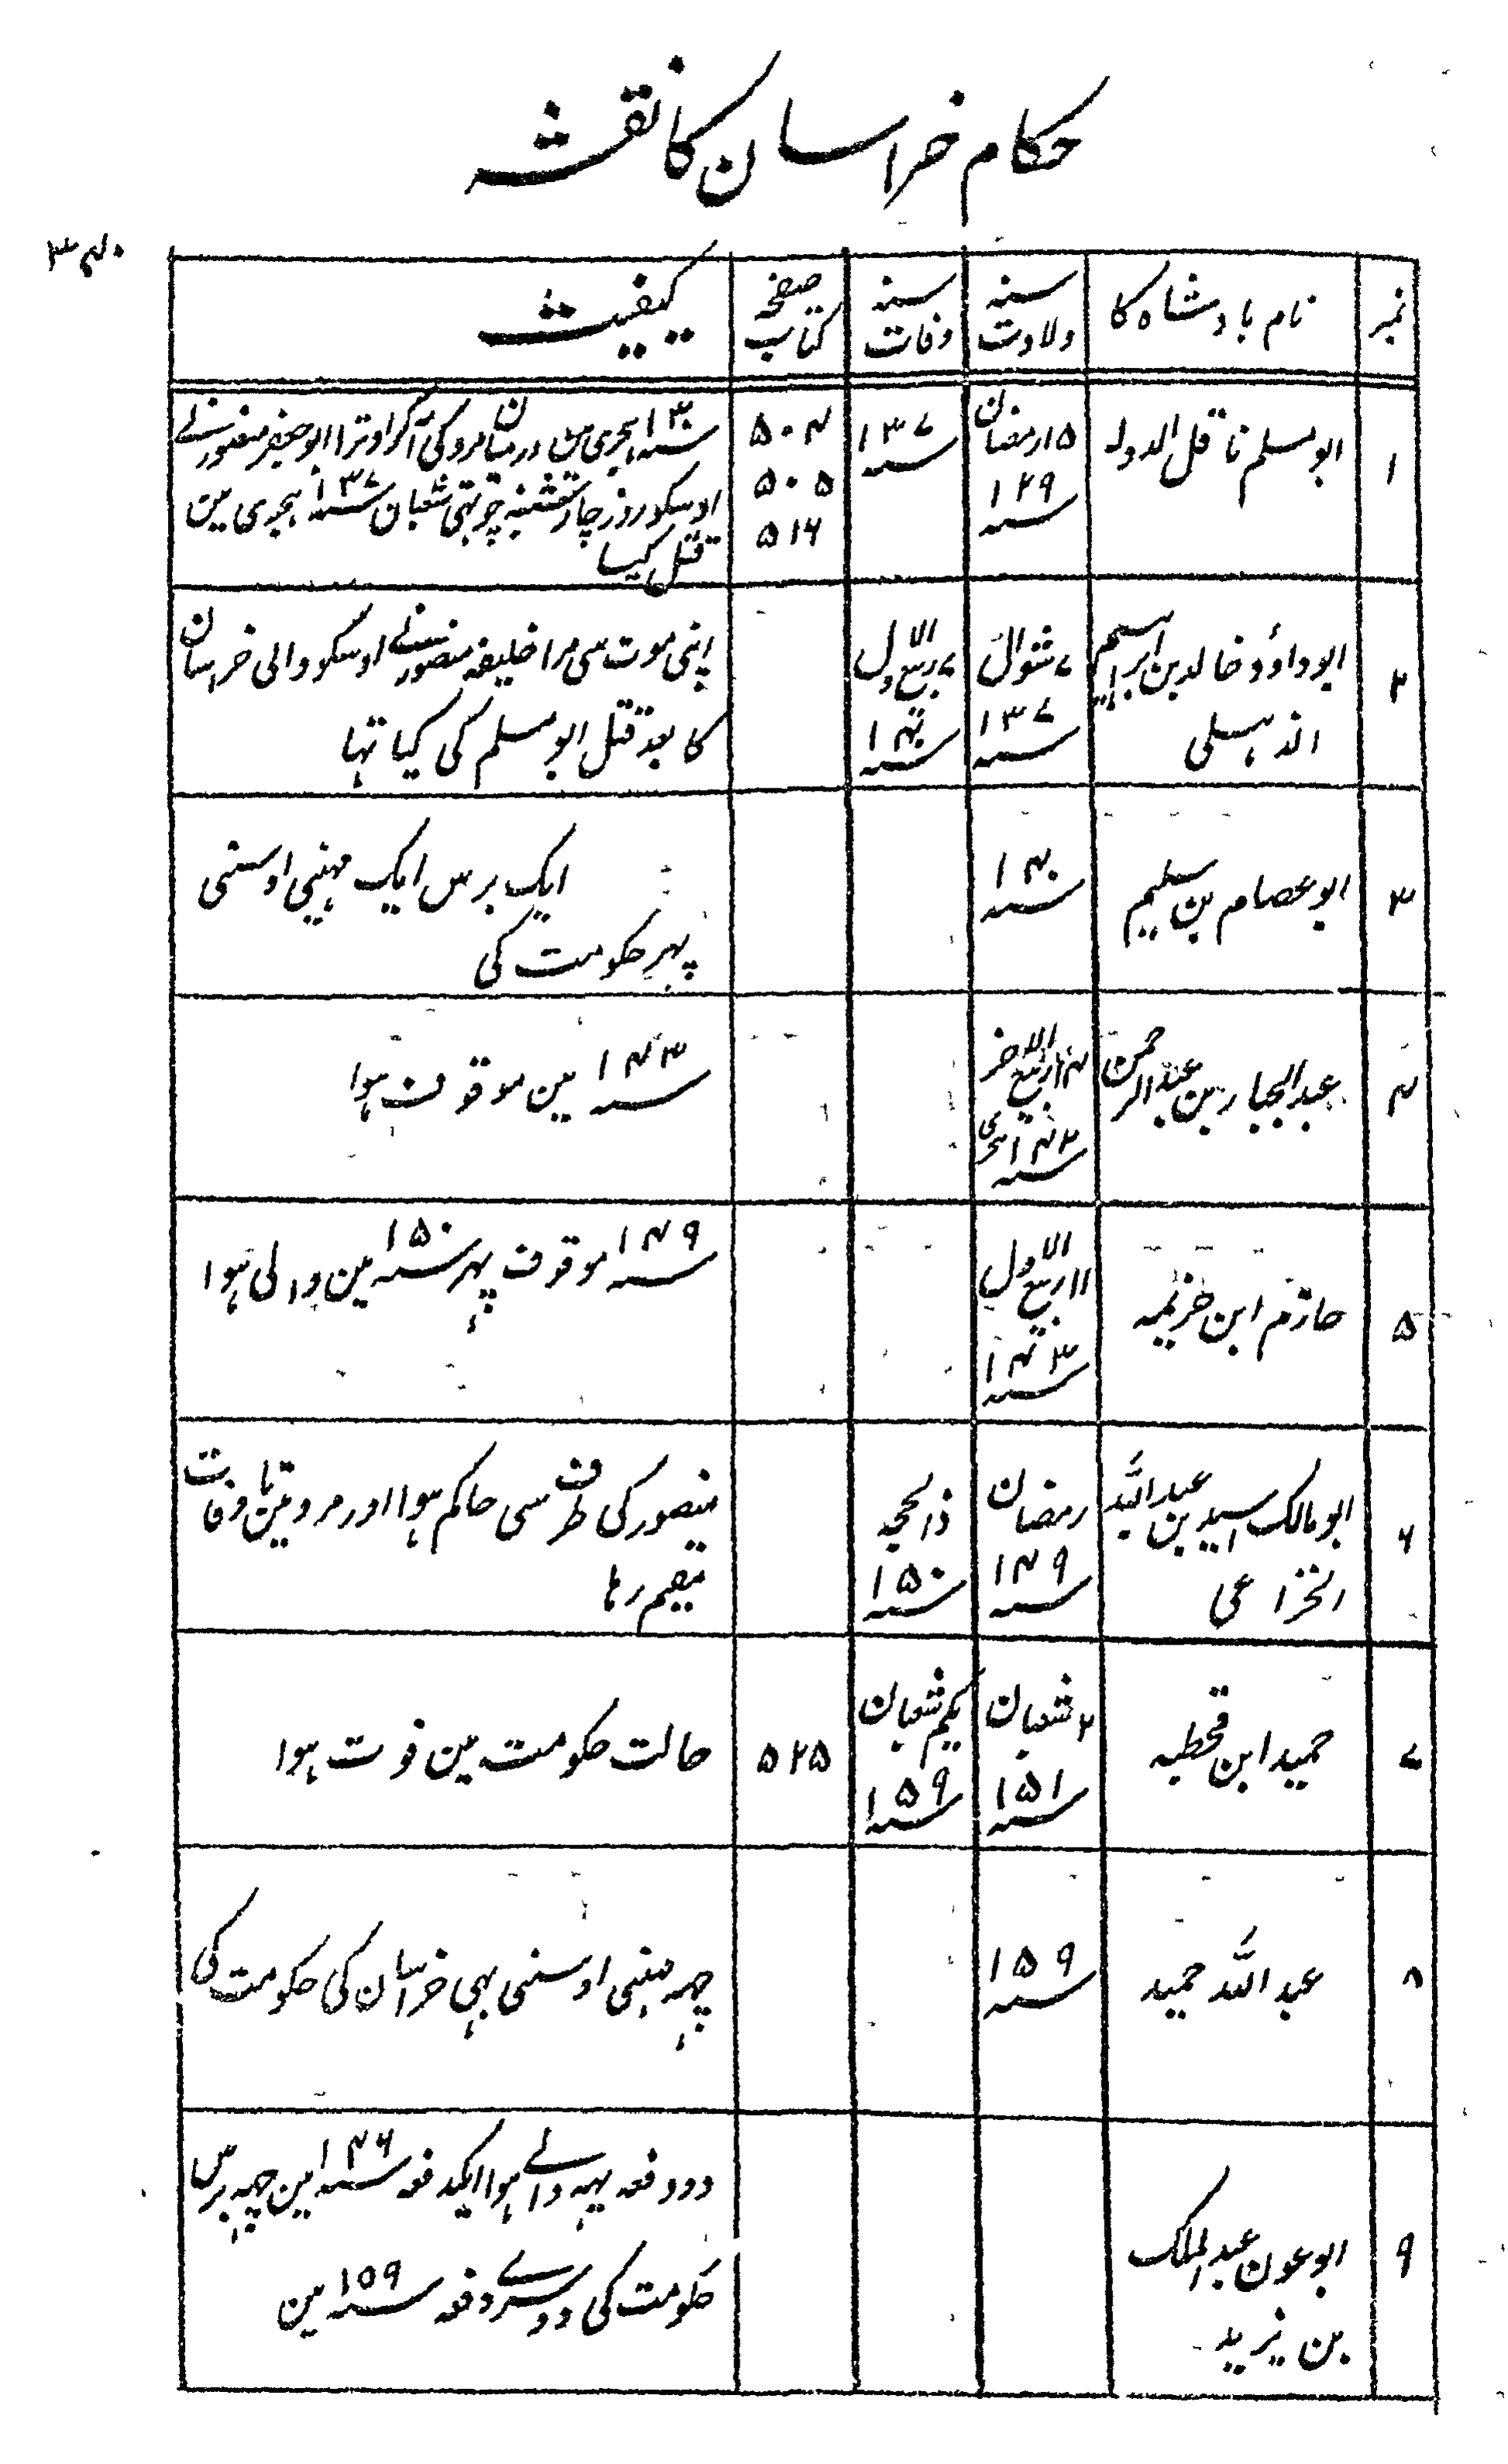 حکام خراسان کا نقشہ
۳۴۰
نمبر
نام بادشاہ کا
سنہ ولادت
سنہ وفات
صفحہ کتاب
کیفیت
۱
ابو مسلم ناقل الدولہ
۱۵ رمضان
سنہ ۱۲۹
سنہ ۱۳۷
۵۰۴
۵۰۵
۵۱۶
سنہ ۱۳۰ ہجری مین درمیان مرو کی آکر اوترا ابو جعفر منصور نے
اوسکو روز چار شنبہ چوبتہی شعبان سنہ ۱۳۷ ہجری مین
قتل کیا
۲
ابو داؤد خالد بن ابراہیم
الذہلی
۷ شوال
سنہ ۱۳۷
ربیع الاول
سنہ ۱۴۰
اپنی موت سی مرا خلیفہ منصور نے اوسکو والی خراسان
کا بعد قتل ابو مسلم کی کیا تہا
۳
ابو عصام بن سلیم
سنہ ۱۴۰
ایک برس ایک مہینی اوسنی
پہر حکومت کی
۴
عبد الجبار بن عبد الرحمن
۱۴ ربیع الاخر
سنہ ۱۴۲ ہجری
سنہ ۱۴۳ مین موقوف ہوا
۵
حازم ابن خزیمہ
۱۱ ربیع الاول
سنہ ۱۴۳
سنہ ۱۴۹ موقوف پہر سنہ ۱۵۰ مین والی ہوا
۶
ابو مالک اسید بن عبد اللہ
الخزاعی
رمضان
سنہ ۱۴۹
ذالحجہ
سنہ ۱۵۰
منصور کی طرف سی حاکم ہوا اور مرو مین تا وفات
مقیم رہا
۷
حمید ابن قحطبہ
۲ شعبان
سنہ ۱۵۱
یکم شعبان
سنہ ۱۵۹
۵۲۵
حالت حکومت مین فوت ہوا
۸
عبد اللہ حمید
سنہ ۱۵۹
چہہ مہینی اوسنی بہی خراسان کی حکومت کی
۹
ابو عون عبد الملک
بن یزید
دو دفعہ یہہ والے ہوا ایکدفعہ سنہ ۱۴۶ مین چہہ برس
حکومت کی دوسرے دفعہ سنہ ۱۵۹ مین